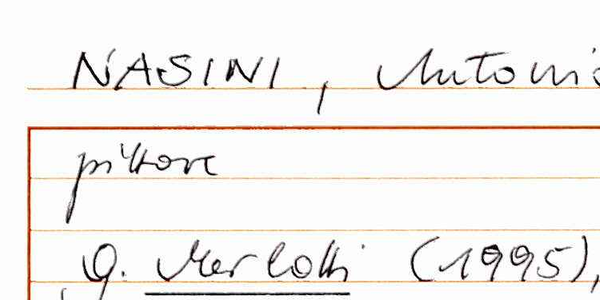 NASINI, Antonio
pittore
G. Merlotti (1995),